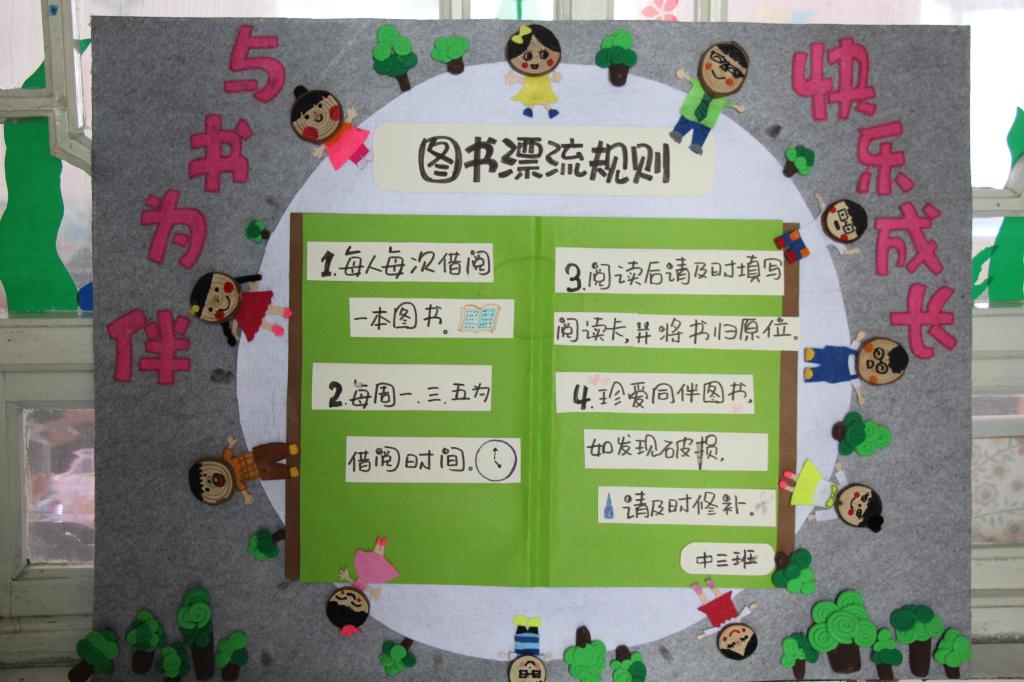 与书为伴
快乐成长
图书漂流规则
1.每人每次借阅
一本图书。
2.每周一.三.五为
借阅时间。
3.阅读后请及时填写
阅读卡,并将书归原位.
4.珍爱同伴图书,
如发现破损,
请及时修补.
中三班